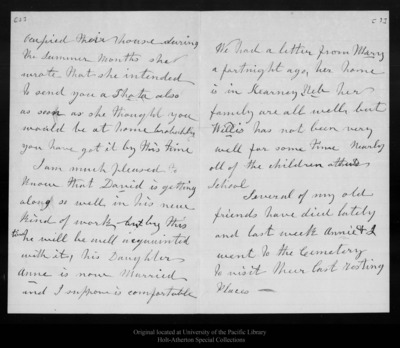 occupied their house during
the Summer Months she
wrote that she intended
to send you a Photo also
as soon as she thought you
would be at home probably
you have got it by this time
I am much pleased to
know that David is getting
along so well in his new
kind of work, but by this
time he will be well acquainted
with it, his Daughter
Anne is now Married
and I suppose is comfortable
We had a letter from Mary
a fortnight ago, her home
is in Kearney Neb her
family are all well, but
Willis has not been very
well for some time Nearly
all of the children attends
School
Several of my old
friends have died lately
and last week Annie & I
went to the Cemetery
to visit their last resting
Places —
Original located at University of the Pacific Library
Holt-Atherton Special Collections